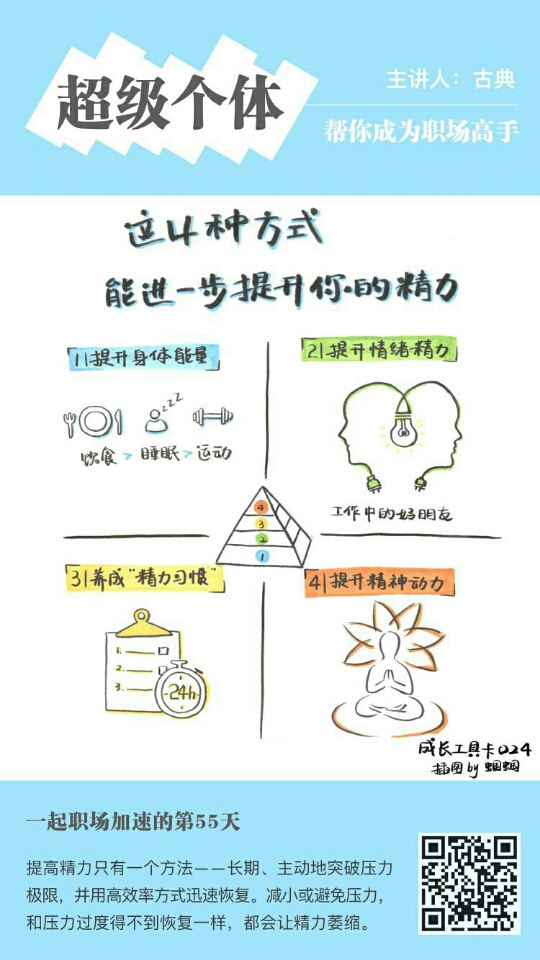 超级个体
主讲人：古典
帮你成为职场高手
这4种方式
能进一步提升你的精力
1|提升身体能量
zzz
饮食>睡眠>运动
2|提升情绪精力
工作中的好朋友
4
3
2
1
3|养成“精力习惯”
1.
2.
3.
24h
4|提升精神动力
成长工具卡024
插图by 蝈蝈
一起职场加速的第55天
提高精力只有一个方法——长期、主动地突破压力
极限，并用高效率方式迅速恢复。减小或避免压力，
和压力过度得不到恢复一样，都会让精力萎缩。